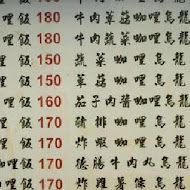 哩飯 180 牛肉草菇咖哩烏龍
哩飯 180 牛肉蔬菜咖哩烏龍
哩飯 150 蔬菜咖哩烏龍
哩飯 150 草菇咖哩烏龍
哩飯 160 茄子肉醬咖哩烏龍
哩飯 170 豬排咖哩烏龍
哩飯 170 炸蝦咖哩烏龍
咖哩飯 170 德腸牛肉丸烏龍
哩飯 170 炸薯條烏龍